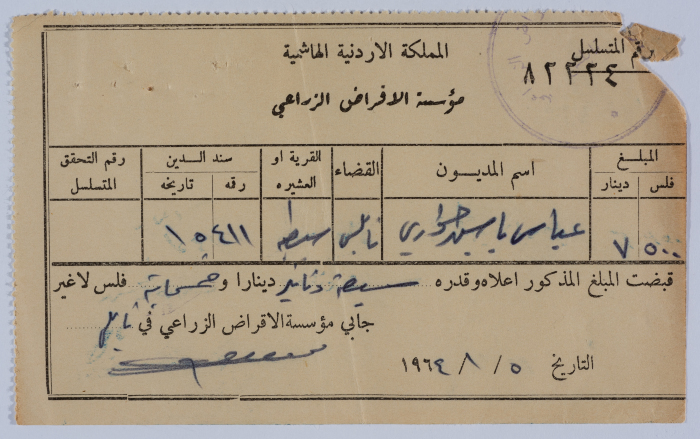 المملكة الاردنية الهاشمية
رقم المتسلسل
٨٢٢٢٤
مؤسسة الاقراض الزراعي
المبلغ
فلس دينار
اسم المديون
القضاء
القرية او العشيره
سند الدين
رقمه تاريخه
رقم التحقق المتسلسل
٥٠٠ ٧
عباس ياسين حواري
نابلس
سبسطيه
١٥٤١١
قبضت المبلغ المذكور اعلاه وقدره سبعة دنانير دينارا و خمسماية فلس لاغير
جابي مؤسسة الاقراض الزراعي في نابلس
التاريخ ٥ / ٨ / ١٩٦٤